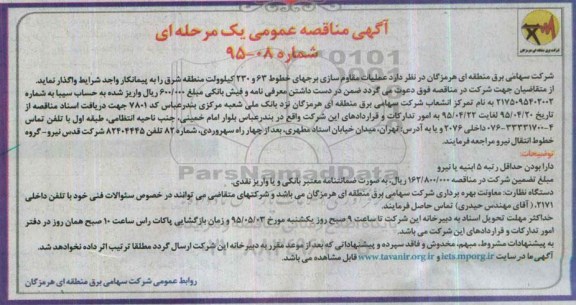 آگهی مناقصه عمومی یک مرحله ای
شماره ۰۸-۹۵
شرکت سهامی برق منطقه ای هرمزگان در نظر دارد عملیات مقاوم سازی برجهای خطوط ۶۳ و ۲۳۰ کیلوولت منطقه شرق را به پیمانکار واجد شرایط واگذار نماید.
از متقاضیان جهت شرکت در مناقصه فوق دعوت می گردد ضمن در دست داشتن معرفی نامه و فیش بانکی مبلغ ۶۰۰/۰۰۰ ریال واریز شده به حساب سیبا به شماره
۲۱۷۵۰۹۵۴۰۲۰۰۲ به نام تمرکز انشعاب شرکت سهامی برق منطقه ای هرمزگان نزد بانک ملی شعبه مرکزی بندرعباس کد ۷۸۰۱ جهت دریافت اسناد مناقصه از
تاریخ ۹۵/۰۴/۲۰ لغایت ۹۵/۰۴/۲۲ به امور تدارکات و قراردادهای این شرکت واقع در بندرعباس بلوار امام خمینی، جنب ناحیه انتظامی، طبقه اول با تلفن تماس
۴-۳۳۳۳۱۷۰۰-۰۷۶ داخلی ۲۰۷۶ و یا به آدرس: تهران، میدان خیابان استاد مطهری، بعد از چهار راه سهروردی، شماره ۸۲ تلفن ۸۲۴۰۴۴۴۵ شرکت قدس نیرو- گروه
خطوط انتقال نیرو مراجعه فرمایند.
توضیحات:
دارا بودن حداقل رتبه ۵ ابنیه یا نیرو
مبلغ تضمین شرکت در مناقصه ۱۶۲/۸۰۰/۰۰۰ ریال، به صورت ضمانتنامه معتبر بانکی و یا واریز نقدی.
دستگاه نظارت: معاونت بهره برداری شرکت سهامی برق منطقه ای هرمزگان می باشد و شرکتهای متقاضی می توانند در خصوص سئوالات فنی خود با تلفن داخلی
۲۱۷۱، ( آقای مهندس حیدری) تماس حاصل فرمایند.
حداکثر مهلت تحویل اسناد به دبیرخانه این شرکت تا ساعت ۹ صبح روز یکشنبه مورخ ۹۵/۰۵/۰۳ و زمان بازگشایی پاکات راس ساعت ۱۰ صبح همان روز در دفتر
امور تدارکات و قراردادهای این شرکت می باشد.
به پیشنهادات مشروط، مبهم، مخدوش و فاقد سپرده و پیشنهاداتی که بعد از موعد مقرر به دبیرخانه این شرکت ارسال گردد مطلقا ترتیب اثر داده نخواهد شد.
آگهی ما در سایت iets.mporg.ir و www.tavanir.org.ir قابل مشاهده می باشد.
روابط عمومی شرکت سهامی برق منطقه ای هرمزگان
ParsNamadData